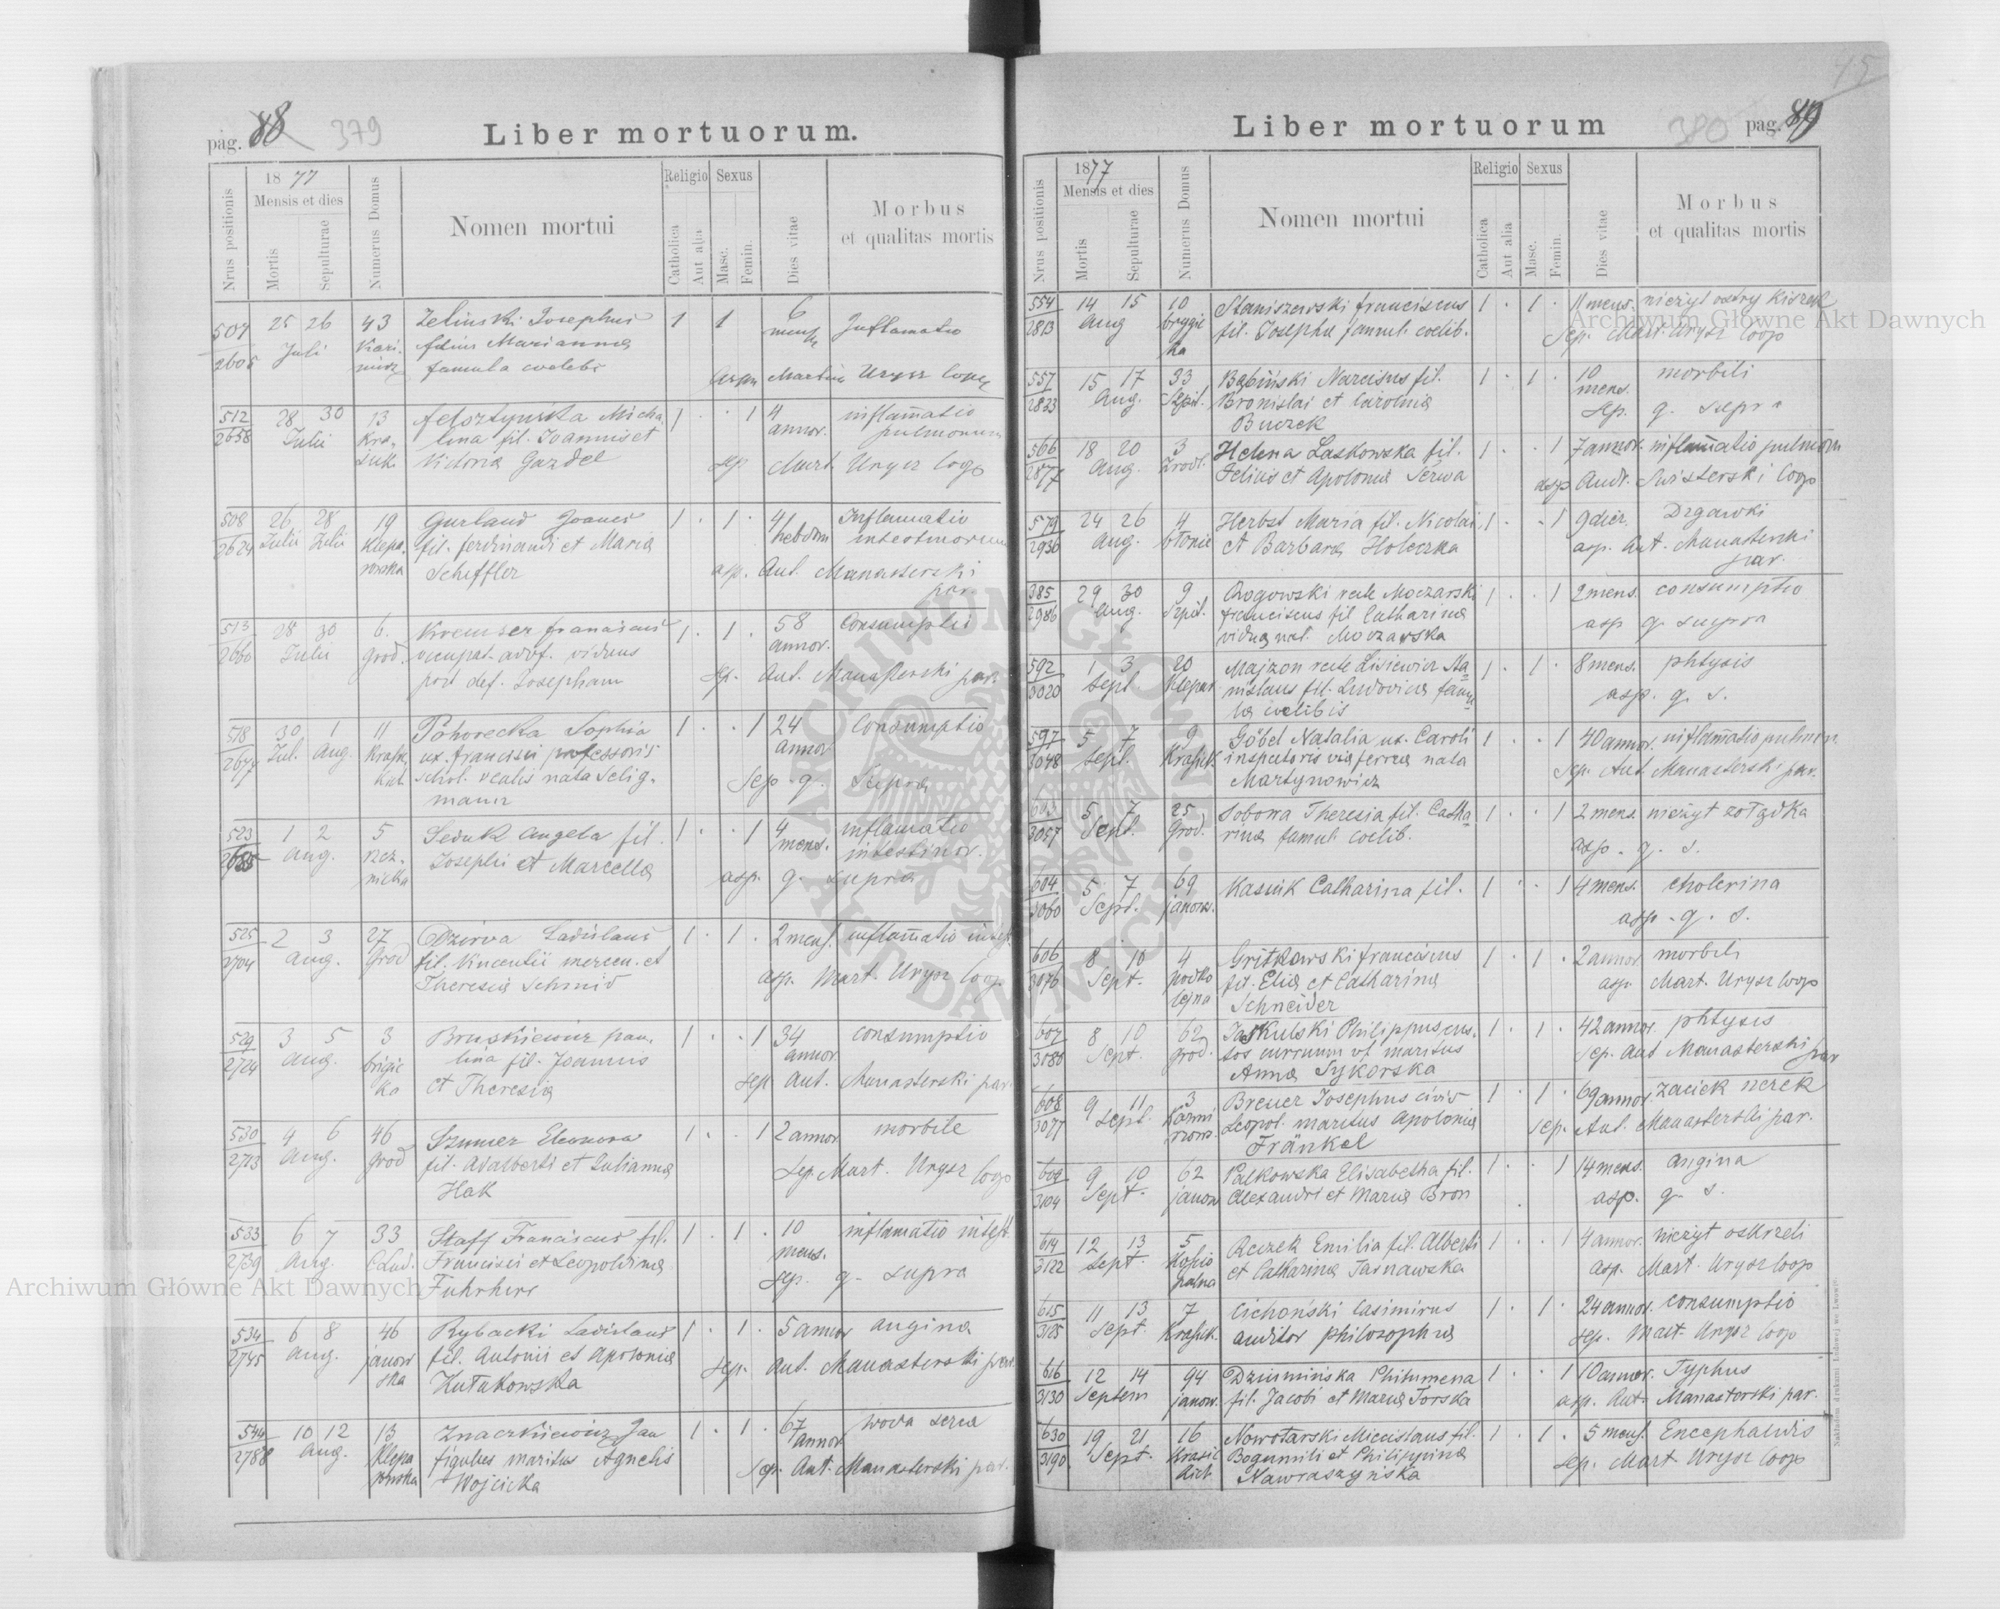 pag. 88 379
Liber mortuorum.
1877
Mensis et dies
Religio Sexus
Nrus positionis
Mortis
Sepulturae
Numerus Domus
Nomen mortui
Catholica
Aut alia
Masc.
Femin.
Dies vitae
Morbus
et qualitas mortis
507 25 26 43 Zelinski Josephus 1 1 6 Inflamatio
2605 Juli Marianna
famula coelebs Martin Urysz coop
512 28 30 13 Micha 1 . . 1 4 inflam̄atio
2658 Julii Kra- lina fil. Joannis et annor. pulmonum
Victoria Gazdel sep Mart. Urysz coop
508 26 28 19 Gurland Joannes 1 . 1 . 4 Inflamatio
2624 Julii Julii Klepa- fil. ferdinandi et Maria hebdom intestinorum
rowska Scheffler asp. Ant. Manasterski
par.
513 28 30 6. Kremser franciscus 1 . 1 . 58 Consumptio
2660 Julii Grod. occupat. advf. viduus annor.
post def. Josepham sep. Ant. Manasterski par.
518 30 1 11 Pohorecka Sophia 1 . . 1 24 Consumptio
2677 Jul. Aug. ux. francisci professoris annor
schol. realis nata Selig- Sep q. supra
mann
523 1 2 5 Seduk Angela fil. 1 . . 1 4 inflamatio
2685 Aug. rzez- Josephi et Marcella mens. intestinor.
nicka asp. q. supra
525 2 3 27 Dzirva Ladislaus 1 . 1 . 2 mens. inflam̄atio intest.
2704 Aug. Grod fil. Vincentii mercen. et
Theresia Schmid asp. Mart. Urysz coop.
529 3 5 3 Bruskiewicz Pau- 1 . . 1 34 consumptio
2724 Aug. brygic lina fil. Joannis annor
ka et Theresia sep Ant. Manasterski par.
530 4 6 46 Szmer Eleonora 1 . . 1 2 annor morbile
2713 Aug. Grod fil. Adalberti et Julianna
Hak Sep Mart. Urysz coop
533 6 7 33 Staff Franciscus fil. 1 . 1 . 10 inflamatio intest.
2739 Aug. Francisci et Leopoldina mens.
Fuhrherr sep. q. supra
534 6 8 46 Rybacki Ladislaus 1 . 1 . 5 annor angina
2745 Aug. janow fil. Antonii et Apolonia
ska Kutakowska sep. Ant. Manasterski par.
544 10 12 13 Znaczkiewicz Jan 1 . 1 . 67 woda serca
2788 Aug. Klepa figulus maritus Agnetis annor
rowska Wojcicka Sep. Ant. Manasterski par.
45
Liber mortuorum
380 pag. 89
1877
Mensis et dies
Religio Sexus
Nrus positionis
Mortis
Sepulturae
Numerus Domus
Nomen mortui
Catholica
Aut alia
Masc.
Femin.
Dies vitae
Morbus
et qualitas mortis
554 14 15 10 Staniszewski franciscus 1 . 1 . 11 mens. nieżyt ostry kiszek
2813 Aug brygic fil. Josepha famuli coelib.
ka Sep. Mart. Urysz coop
557 15 17 33 Babiński Narcisus fil. 1 . 1 . 10 morbili
2823 Aug. Szpit. Bronislai et Carolina mens.
Buczek sep. q. supra
566 18 20 3 Helena Laskowska fil. 1 . . 1 7 annor. inflam̄atio pulmom
2877 Aug. Zrodl. Felicis et Apolonia Serwa asp Andr. coop
579 24 26 4 Herbst Maria fil. Nicolai 1 . . 1 9 dier. Drgawki
2936 Aug. błonie et Barbara Holeczka asp. Ant. Manasterski
par.
585 29 30 9 Rogowski recte Moczarski 1 . . 1 2 mens. consumptio
2986 Aug. Szpit. franciscus fil Catharina
vidua nat. Moczarska asp q. supra
592 1 3 20 Majzon recte 1 . 1 . 8 mens. phtysis
3020 Sept. Klepar. nislaus fil. Ludovica famu
la coelibis asp. q. s.
597 5 7 9 Göbel Natalia ux. Caroli 1 . . 1 40 annor. inflam̄atio pulmon.
3048 Sept. Krasick. inspectoris via ferrea nata
Martynowicz Sep. Ant. Manasterski par.
603 5 7 25 Sobowa Theresia fil. Catha 1 . . 1 2 mens. nieżyt żołądka
3057 Sept. Grod. rina famul. coelib. asp. q. s.
604 5 7 69 Kasiuk Catharina fil. 1 . . 1 4 mens. cholerina
3060 Sept. janows. asp. q. s.
606 8 10 4 Gritkowski franciscus 1 . 1 . 2 annor morbili
3076 Sept. fil. Elia et Catharina
Schneider asp. Mart. Urysz coop
607 8 10 62 Jaskulski Philippus cus- 1 . 1 . 42 annor. phtysis
3080 Sept. Grod. tos curruum vf maritus
Anna Sykorska Sep. Ant Manasterski par
608 9 11 3 Breuer Josephus civis 1 . 1 . 69 annor zaciek nerek
3077 Sept. Kazimi Leopol. maritus Apolonia
rzows. Fränkel sep. Ant. Manasterski par.
609 9 10 62 Palkowska Elisabetha fil. 1 . . 1 14 mens. angina
3104 Sept. janow Alexandri et Maria Bron asp. q. s.
614 12 13 5 Reczek Emilia fil. Alberti 1 . . 1 4 annor. nieżyt oskrzeli
3122 Sept. et Catharina Tarnawska
asp. Mart. Urysz coop
615 11 13 7 Cichoński Casimirus 1 . 1 . 24 annor. consumptio
3125 Sept. Krasick. auditor philosophia sep. Mart. Urysz coop
616 12 14 94 Dziuminska Philumena 1 . . 1 10 annor. Typhus
3130 Septem janow. fil. Jacobi et Maria Torska asp. Ant. Manasterski par.
630 19 21 16 Nowotarski Miecislaus fil. 1 . 1 . 5 mens. Encephalitis
3190 Sept. Krasic Bogumili et Philippina
kich Nawraszyńska sep. Mart Urysz coop
Nakładem drukarni Ludowej we Lwowie.
Archiwum Główne Akt Dawnych
Archiwum Główne Akt Dawnych
ARCHIWUM GŁÓWNE AKT DAWNYCH